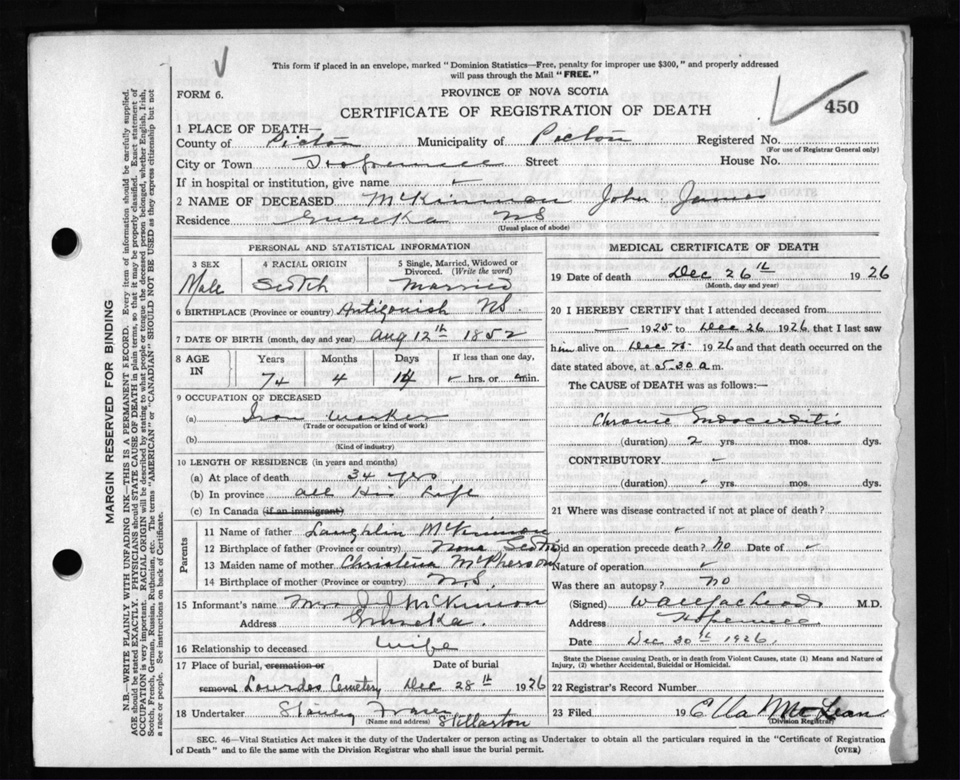 This form if placed in an envelope, marked "Dominion Statistics—Free, penalty for improper use $300," and properly addressed
will pass through the Mail "FREE."
FORM 6.
PROVINCE OF NOVA SCOTIA
CERTIFICATE OF REGISTRATION OF DEATH
450
1 PLACE OF DEATH—
County of Pictou Municipality of Pictou Registered No.
(For use of Registrar General only)
City or Town Hopewell Street House No.
If in hospital or institution, give name
2 NAME OF DECEASED McKinnon John James
Residence Eureka NS
(Usual place of abode)
PERSONAL AND STATISTICAL INFORMATION
3 SEX 4 RACIAL ORIGIN 5 Single, Married, Widowed or Divorced. (Write the word)
Male Scotch Married
6 BIRTHPLACE (Province or country) Antigonish NS.
7 DATE OF BIRTH (month, day and year) Aug 12th 1852
8 AGE IN Years Months Days If less than one day,
74 4 14 hrs. or min.
9 OCCUPATION OF DECEASED
(a) Iron Worker
(Trade or occupation or kind of work)
(b)
(Kind of industry)
10 LENGTH OF RESIDENCE (in years and months)
(a) At place of death 34 yrs
(b) In province all His Life
(c) In Canada (if an immigrant)
Parents
11 Name of father Laughlin McKinnon
12 Birthplace of father (Province or country) Nova Scotia
13 Maiden name of mother Christena McPherson
14 Birthplace of mother (Province or country) N.S.
15 Informant's name Mrs J J McKinnon
Address Eureka.
16 Relationship to deceased wife
17 Place of burial, cremation or removal Date of burial
Lourdes Cemetery Dec 28th 1926
18 Undertaker Stanley Fraser Stellarton
(Name and address)
MEDICAL CERTIFICATE OF DEATH
19 Date of death Dec 26th 1926
(Month, day and year)
20 I HEREBY CERTIFY that I attended deceased from
1925 to Dec 26 1926, that I last saw
him alive on Dec 1926 and that death occurred on the
date stated above, at 5.30 a m.
The CAUSE of DEATH was as follows:—
Chronic Endocarditis
(duration) 2 yrs. mos. dys.
CONTRIBUTORY
(duration) yrs. mos. dys.
21 Where was disease contracted if not at place of death?
Did an operation precede death? No Date of
Nature of operation
Was there an autopsy? no
(Signed) M.D.
Address Hopewell
Date Dec 30th 1926.
State the Disease causing Death, or in death from Violent Causes, state (1) Means and Nature of
Injury, (2) whether Accidental, Suicidal or Homicidal.
22 Registrar's Record Number
23 Filed 19 Ella McLean
(Division Registrar)
SEC. 46—Vital Statistics Act makes it the duty of the Undertaker or person acting as Undertaker to obtain all the particulars required in the "Certificate of Registration
of Death" and to file the same with the Division Registrar who shall issue the burial permit.
(OVER)
MARGIN RESERVED FOR BINDING
N.B.—WRITE PLAINLY WITH UNFADING INK—THIS IS A PERMANENT RECORD. Every item of information should be carefully supplied.
AGE should be stated EXACTLY. PHYSICIANS should STATE CAUSE OF DEATH in plain terms, so that it may be properly classified. Exact statement of
OCCUPATION is very important. RACIAL ORIGIN will be described by stating to what people or tongue the deceased person belonged, whether English, Irish,
Scotch, French, German, Russian, Ruthenian, etc. The terms "AMERICAN" or "CANADIAN" SHOULD NOT BE USED as they express citizenship but not
a race or people. See instructions on back of Certificate.